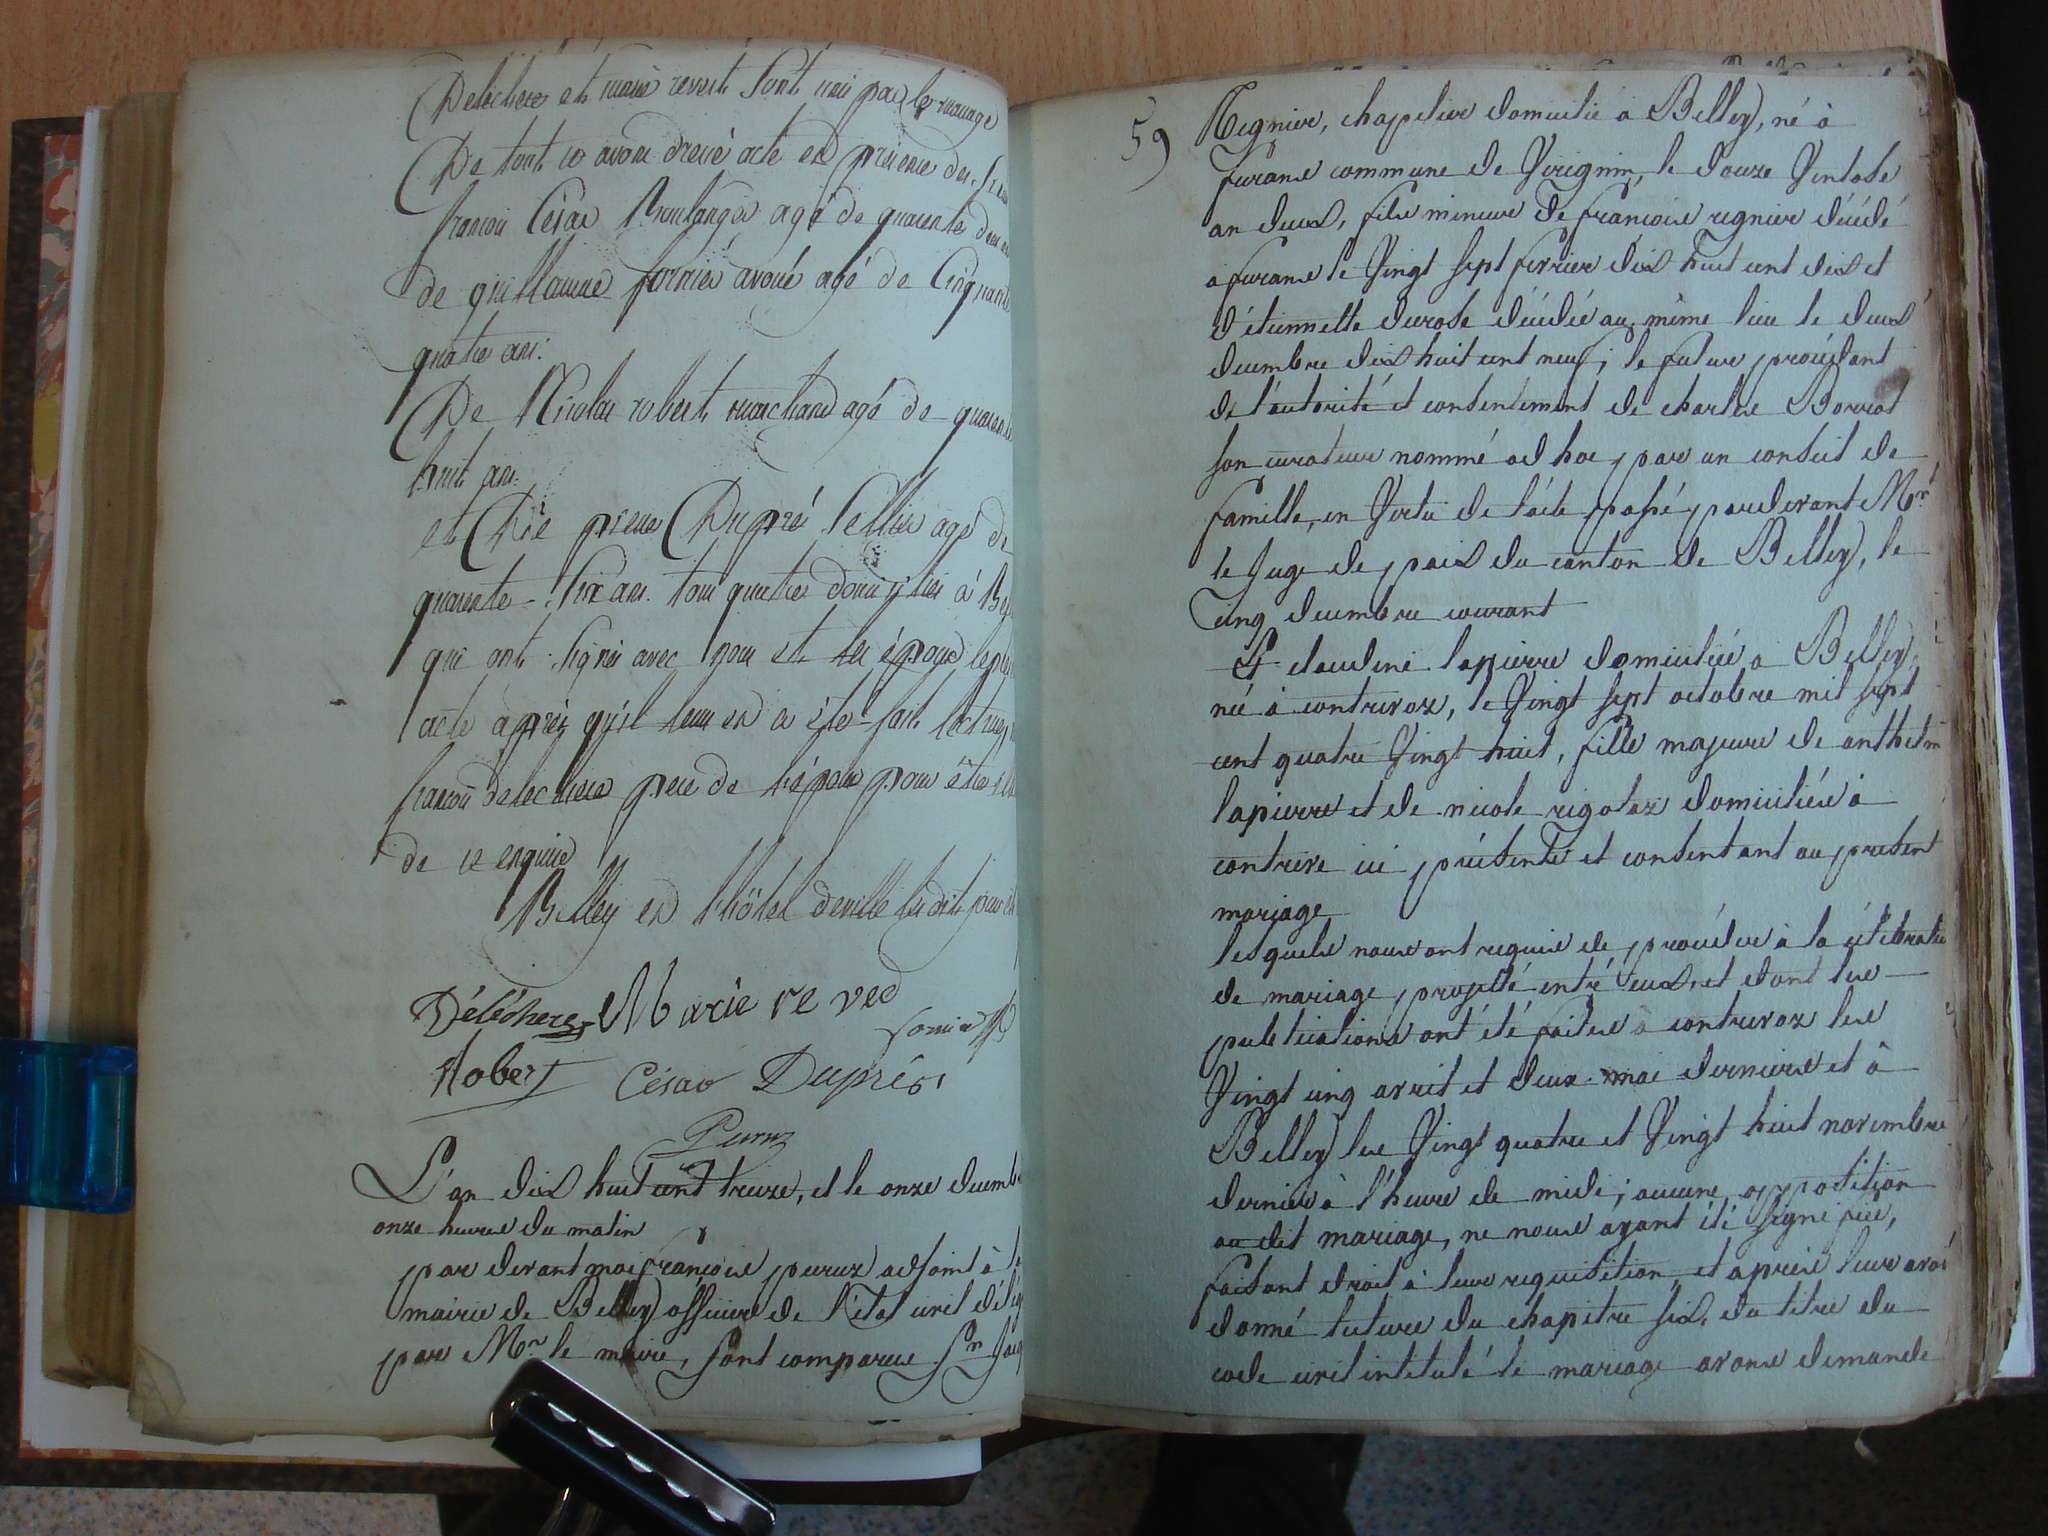 Delechere et marie revert sont unis par le mariage
De tout ce avons dressé acte en présence des sieurs
françois César Boulanger agé de quarante deux ans
de guillaume fornier avoué agé de Cinquante
quatre ans.
De Nicolas robert marchand agé de quarante
huit ans.
et De pierre Dupré sellier agé de
quarante-six ans. tous quatre domiciliés à Bel
qui ont signés avec nous et les époux le présent
acte après qu'il leur en a été fait lecture,
françois delechere pere de l'époux pour être
de ce enquis
Belley en l'hôtel deville les dits jour et
Déléchere Marie reved
fornier
Robert César Duprés
Peruz
L'an dix huit cent treize, et le onze decemb
onze heures du matin
par devant moi françois peruz adjoint à la
mairie de Belley officier de l'état civil délég
par Mr. le maire, sont comparus Sr. Jacq
59
Regnier, chapelier domicilié à Belley, né à
furans commune de Virignin, le douze Ventose
an deux, fils mineur de françois regnier décédé
a furans le Vingt sept fevrier dix huit cent dix et
d'étiennette durose décédée au même lieu le deux
decembre dix huit cent neuf; le futur procédant
de l'autorité et consentement de charles Borriot
son curateur nommé ad hoc par un conseil de
famille, en Vertu de l'acte passé pardevant Mr.
le juge de paix du canton de Belley, le
cinq decembre courant
Et claudine lapierre domiciliée a Belley,
née à contrevoz, le Vingt sept octobre mil sept
cent quatre Vingt huit, fille majeure de anthelm
lapierre et de nicole rigotaz domiciliés à
contreve ici présents et consentant au present
mariage
lesquels nous ont requis de procéder à la célébration
de mariage projetté entré eux, et dont les
publications ont été faites à contrevoz les
Vingt cinq avril et deux mai derniers et à
Belley les Vingt quatre et Vingt huit novembre
dernier à l'heure de midi; aucune opposition
au dit mariage, ne nous ayant été signifiée,
faisant droit à leur requisition, et après leur avoi
donné lecture du chapitre six, du titre du
code civil intitulé le mariage avons demandé